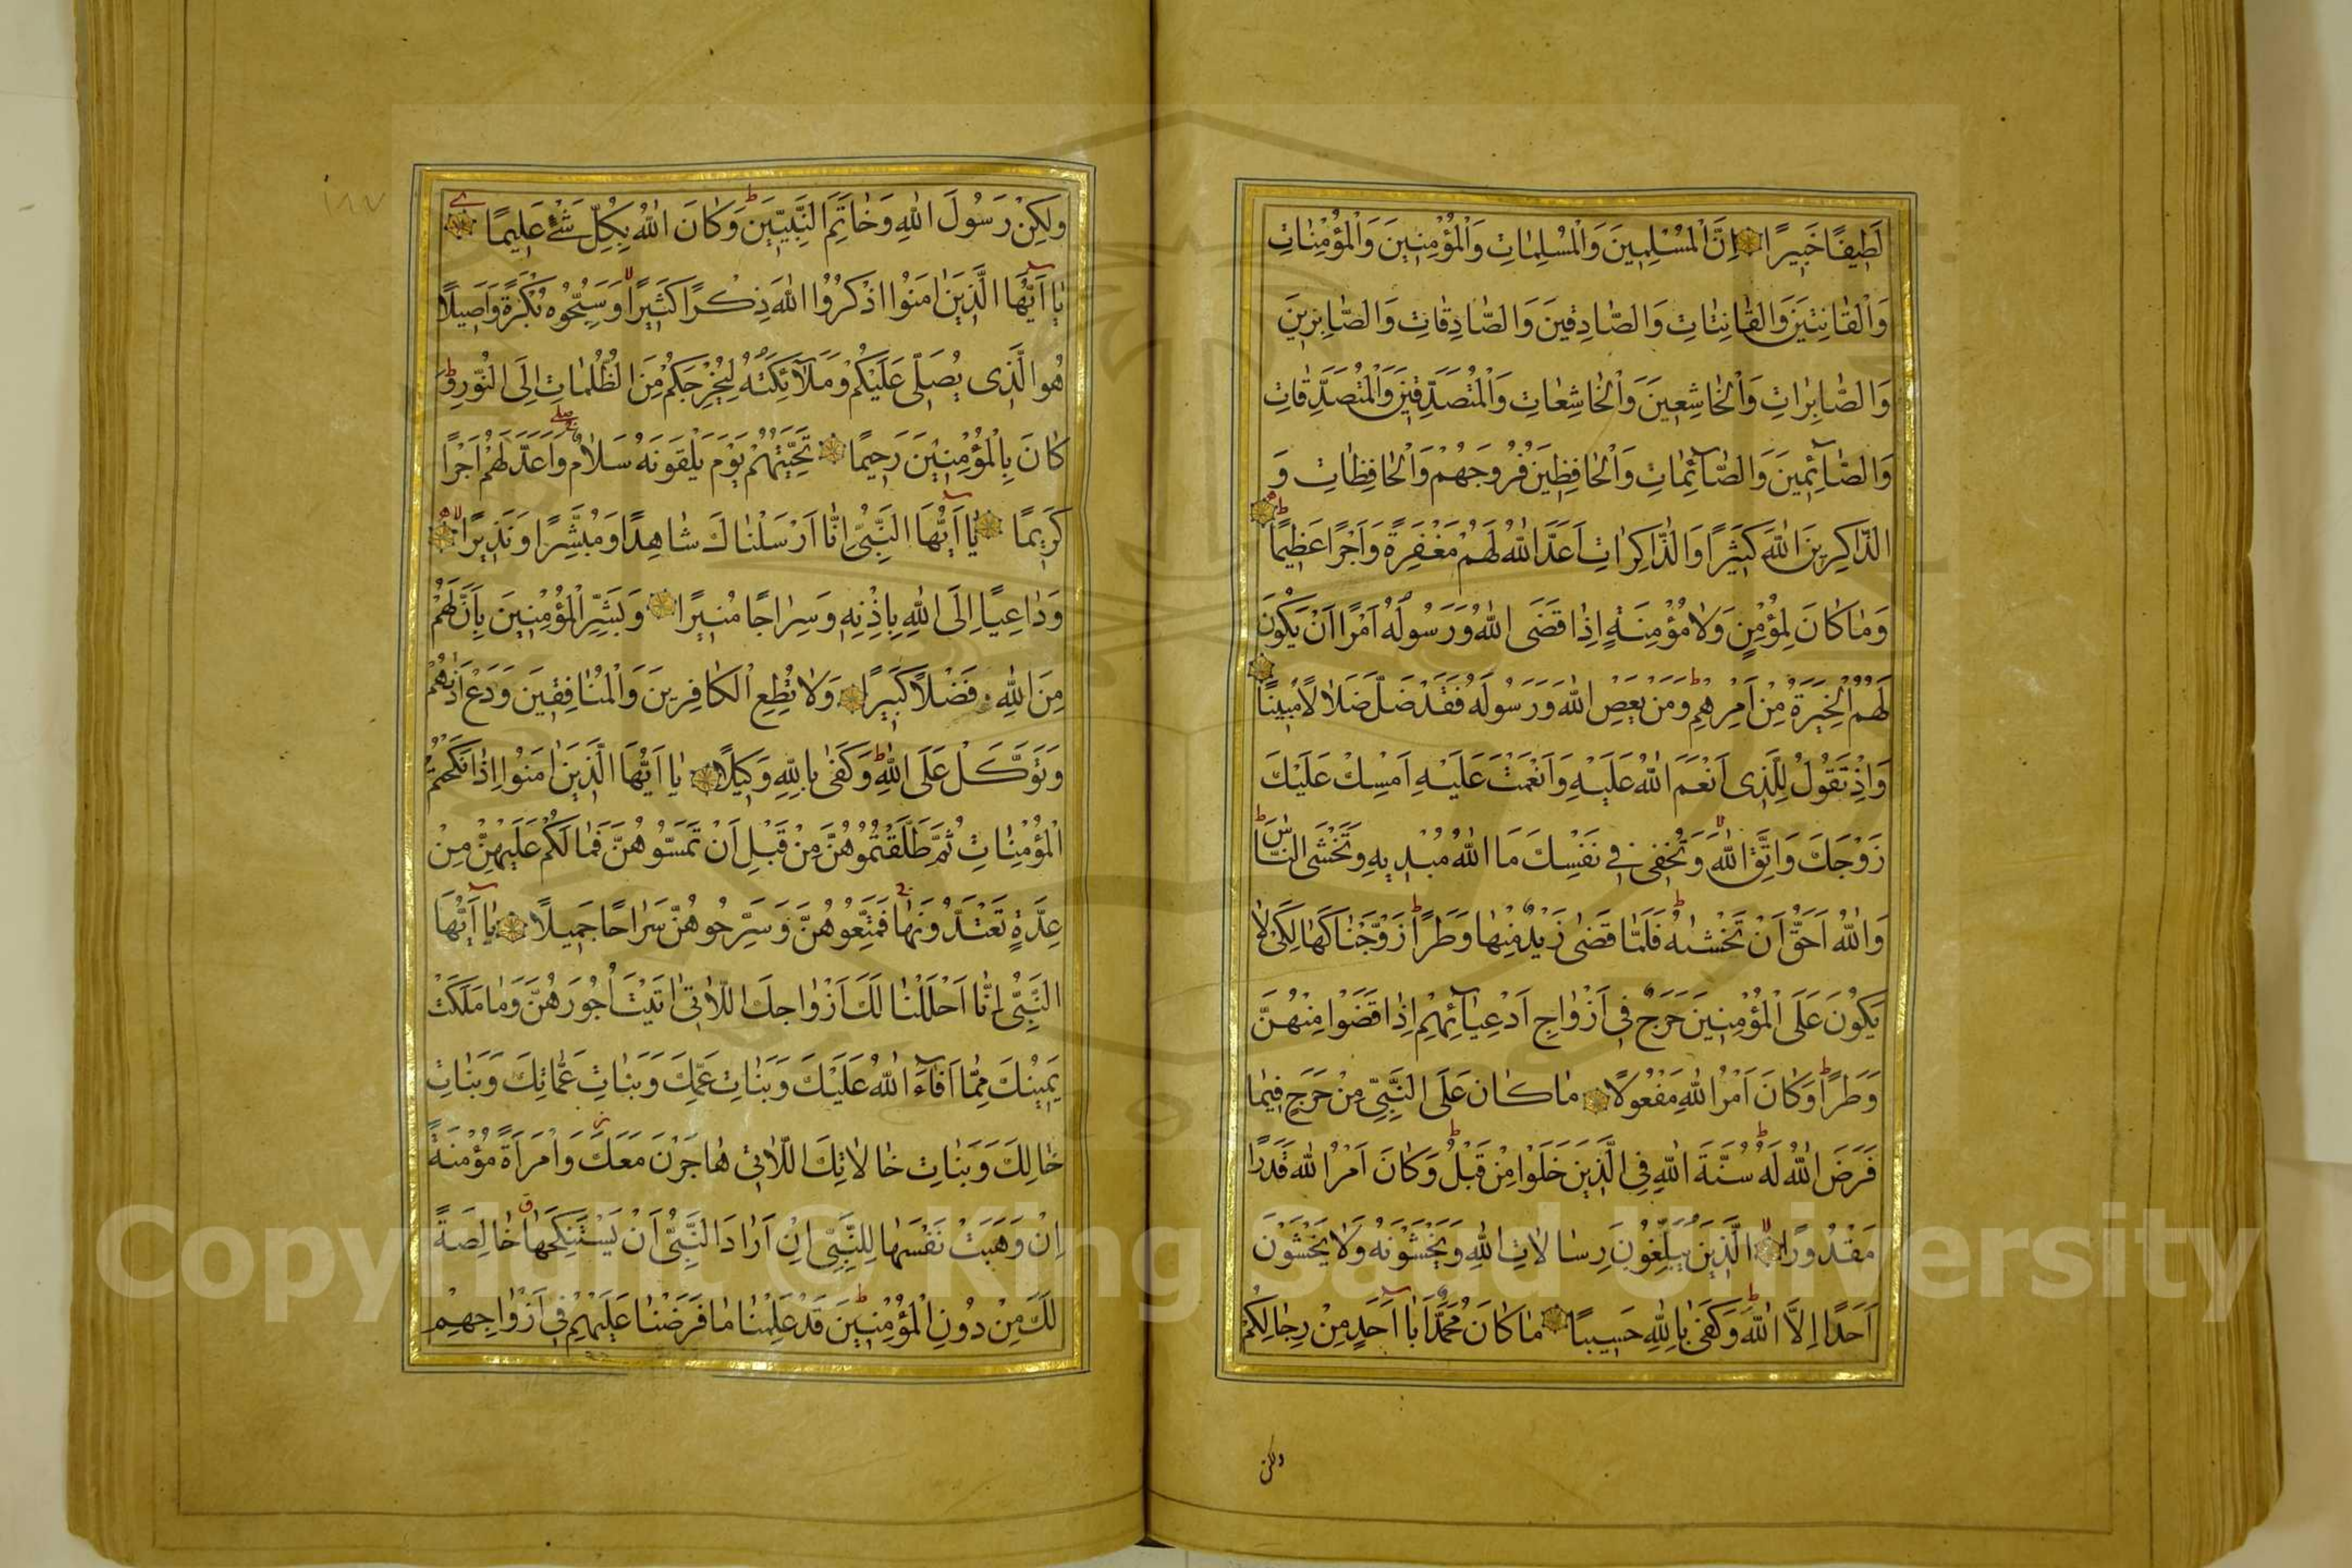 لَطِيفًا خَبِيرًا اِنَّ الْمُسْلِمِينَ وَالْمُسْلِمَاتِ وَالْمُؤْمِنِينَ وَالْمُؤْمِنَاتِ
وَالْقَانِتِينَ وَالْقَانِتَاتِ وَالصَّادِقِينَ وَالصَّادِقَاتِ وَالصَّابِرِينَ
وَالصَّابِرَاتِ وَالْخَاشِعِينَ وَالْخَاشِعَاتِ وَالْمُتَصَدِّقِينَ وَالْمُتَصَدِّقَاتِ
وَالصَّآئِمِينَ وَالصَّآئِمَاتِ وَالْحَافِظِينَ فُرُوجَهُمْ وَالْحَافِظَاتِ وَ
الذَّاكِرِينَ اللّٰهَ كَثِيرًا وَالذَّاكِرَاتِ اَعَدَّ اللّٰهُ لَهُمْ مَغْفِرَةً وَاَجْرًا عَظِيمًا
وَمَا كَانَ لِمُؤْمِنٍ وَلَا مُؤْمِنَةٍ اِذَا قَضَى اللّٰهُ وَرَسُولُهُ اَمْرًا اَنْ يَكُونَ
لَهُمُ الْخِيَرَةُ مِنْ اَمْرِهِمْ وَمَنْ يَعْصِ اللّٰهَ وَرَسُولَهُ فَقَدْ ضَلَّ ضَلَالًا مُبِينًا
وَاِذْ تَقُولُ لِلَّذِى اَنْعَمَ اللّٰهُ عَلَيْهِ وَاَنْعَمْتَ عَلَيْهِ اَمْسِكْ عَلَيْكَ
زَوْجَكَ وَاتَّقِ اللّٰهَ وَتُخْفِى فِى نَفْسِكَ مَا اللّٰهُ مُبْدِيهِ وَتَخْشَى النَّاسَ
وَاللّٰهُ اَحَقُّ اَنْ تَخْشٰيهُ فَلَمَّا قَضٰى زَيْدٌ مِنْهَا وَطَرًا زَوَّجْنَاكَهَا لِكَىْ لَا
يَكُونَ عَلَى الْمُؤْمِنِينَ حَرَجٌ فِى اَزْوَاجِ اَدْعِيَآئِهِمْ اِذَا قَضَوْا مِنْهُنَّ
وَطَرًا وَكَانَ اَمْرُ اللّٰهِ مَفْعُولًا مَا كَانَ عَلَى النَّبِىِّ مِنْ حَرَجٍ فِيمَا
فَرَضَ اللّٰهُ لَهُ سُنَّةَ اللّٰهِ فِى الَّذِينَ خَلَوْا مِنْ قَبْلُ وَكَانَ اَمْرُ اللّٰهِ قَدَرًا
مَقْدُورًا الَّذِينَ يُبَلِّغُونَ رِسَالَاتِ اللّٰهِ وَيَخْشَوْنَهُ وَلَا يَخْشَوْنَ
اَحَدًا اِلَّا اللّٰهَ وَكَفٰى بِاللّٰهِ حَسِيبًا مَا كَانَ مُحَمَّدٌ اَبَا اَحَدٍ مِنْ رِجَالِكُمْ
ولكن
١٨٧
وَلٰكِنْ رَسُولَ اللّٰهِ وَخَاتَمَ النَّبِيِّينَ وَكَانَ اللّٰهُ بِكُلِّ شَىْءٍ عَلِيمًا
يَا اَيُّهَا الَّذِينَ اٰمَنُوا اذْكُرُوا اللّٰهَ ذِكْرًا كَثِيرًا وَسَبِّحُوهُ بُكْرَةً وَاَصِيلًا
هُوَ الَّذِى يُصَلِّى عَلَيْكُمْ وَمَلَآئِكَتُهُ لِيُخْرِجَكُمْ مِنَ الظُّلُمَاتِ اِلَى النُّورِ وَ
كَانَ بِالْمُؤْمِنِينَ رَحِيمًا تَحِيَّتُهُمْ يَوْمَ يَلْقَوْنَهُ سَلَامٌ وَاَعَدَّ لَهُمْ اَجْرًا
كَرِيمًا يَا اَيُّهَا النَّبِىُّ اِنَّا اَرْسَلْنَاكَ شَاهِدًا وَمُبَشِّرًا وَنَذِيرًا
وَدَاعِيًا اِلَى اللّٰهِ بِاِذْنِهِ وَسِرَاجًا مُنِيرًا وَبَشِّرِ الْمُؤْمِنِينَ بِاَنَّ لَهُمْ
مِنَ اللّٰهِ فَضْلًا كَبِيرًا وَلَا تُطِعِ الْكَافِرِينَ وَالْمُنَافِقِينَ وَدَعْ اَذٰيهُمْ
وَتَوَكَّلْ عَلَى اللّٰهِ وَكَفٰى بِاللّٰهِ وَكِيلًا يَا اَيُّهَا الَّذِينَ اٰمَنُوا اِذَا نَكَحْتُمُ
الْمُؤْمِنَاتِ ثُمَّ طَلَّقْتُمُوهُنَّ مِنْ قَبْلِ اَنْ تَمَسُّوهُنَّ فَمَا لَكُمْ عَلَيْهِنَّ مِنْ
عِدَّةٍ تَعْتَدُّونَهَا فَمَتِّعُوهُنَّ وَسَرِّحُوهُنَّ سَرَاحًا جَمِيلًا يَا اَيُّهَا
النَّبِىُّ اِنَّا اَحْلَلْنَا لَكَ اَزْوَاجَكَ اللَّاتِى اٰتَيْتَ اُجُورَهُنَّ وَمَا مَلَكَتْ
يَمِينُكَ مِمَّا اَفَآءَ اللّٰهُ عَلَيْكَ وَبَنَاتِ عَمِّكَ وَبَنَاتِ عَمَّاتِكَ وَبَنَاتِ
خَالِكَ وَبَنَاتِ خَالَاتِكَ اللَّاتِى هَاجَرْنَ مَعَكَ وَامْرَاَةً مُؤْمِنَةً
اِنْ وَهَبَتْ نَفْسَهَا لِلنَّبِىِّ اِنْ اَرَادَ النَّبِىُّ اَنْ يَسْتَنْكِحَهَا خَالِصَةً
لَكَ مِنْ دُونِ الْمُؤْمِنِينَ قَدْ عَلِمْنَا مَا فَرَضْنَا عَلَيْهِمْ فِى اَزْوَاجِهِمْ
Copyright © King Saud University